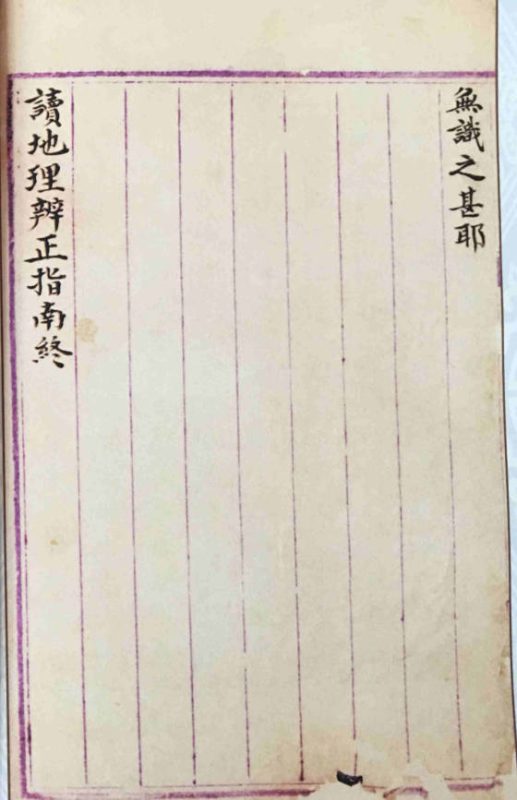 無識之甚耶
讀地理辨正指南終